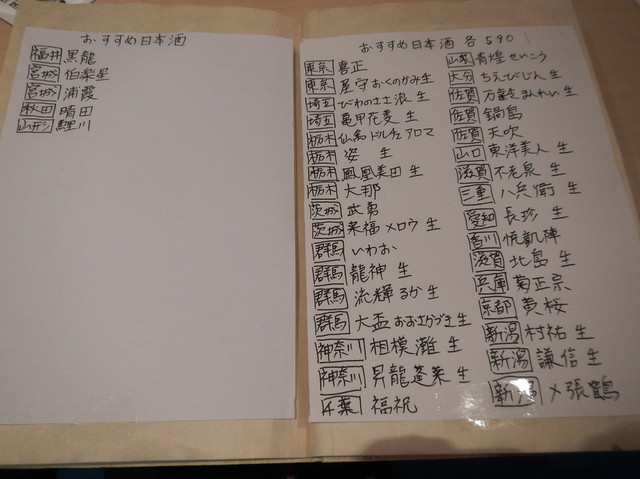 おすすめ日本酒
福井 黒龍
宮城 伯楽星
宮城 浦霞
秋田 晴田
山形 鯉川
おすすめ日本酒 各590
東京 喜正
東京 屋守 おくのかみ 生
埼玉 びわのささ浪 生
埼玉 亀甲花菱 生
栃木 仙禽 ドルチェ アロマ
栃木 姿 生
栃木 鳳凰美田 生
栃木 大那
茨城 武勇
茨城 来福 メロウ 生
群馬 いわお
群馬 龍神 生
群馬 流輝 るか 生
群馬 大盃 おおさかづき 生
神奈川 相模灘 生
神奈川 昇龍蓬莱 生
千葉 福祝
山梨 青煌 せいこう
大分 ちえびじん 生
佐賀 万齢 まんれい 生
佐賀 鍋島
佐賀 天吹
山口 東洋美人 生
滋賀 不老泉 生
三重 八兵衛 生
愛知 長珍 生
香川 悦凱陣
滋賀 北島 生
兵庫 菊正宗
京都 黄桜
新潟 村祐 生
新潟 謙信 生
新潟 〆張鶴